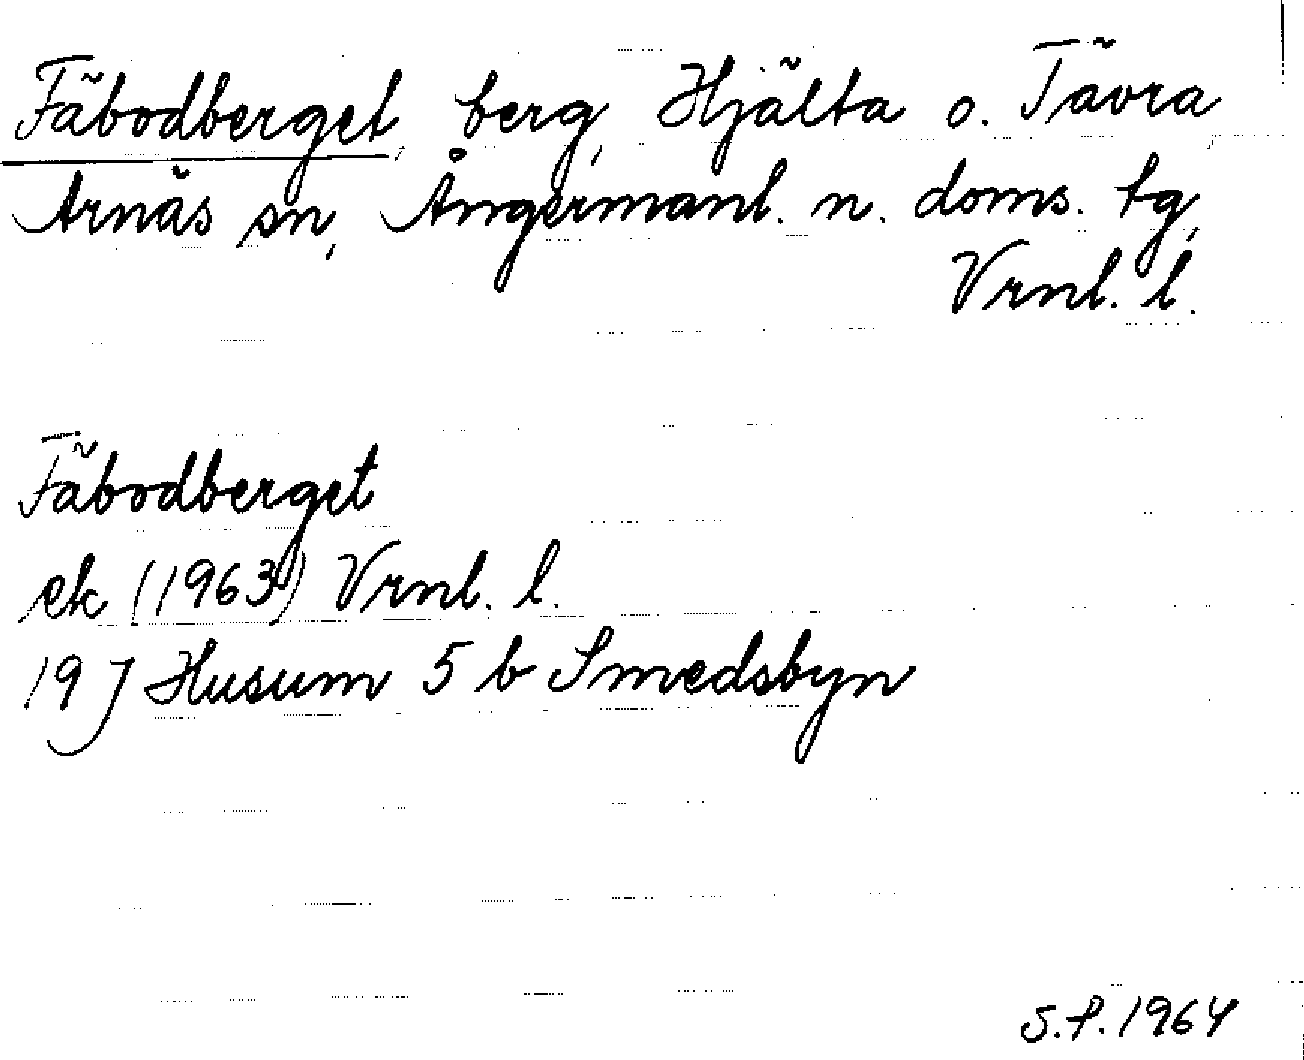 Fäbodberget, berg, Hjälta o. Tävra
Arnäs sn, Ångermanl. n. doms. tg,
Vrnl. l.
Fäbodberget
ek (1963) Vrnl. l.
19 J Husum 5 b Smedsbyn
S.P. 1964